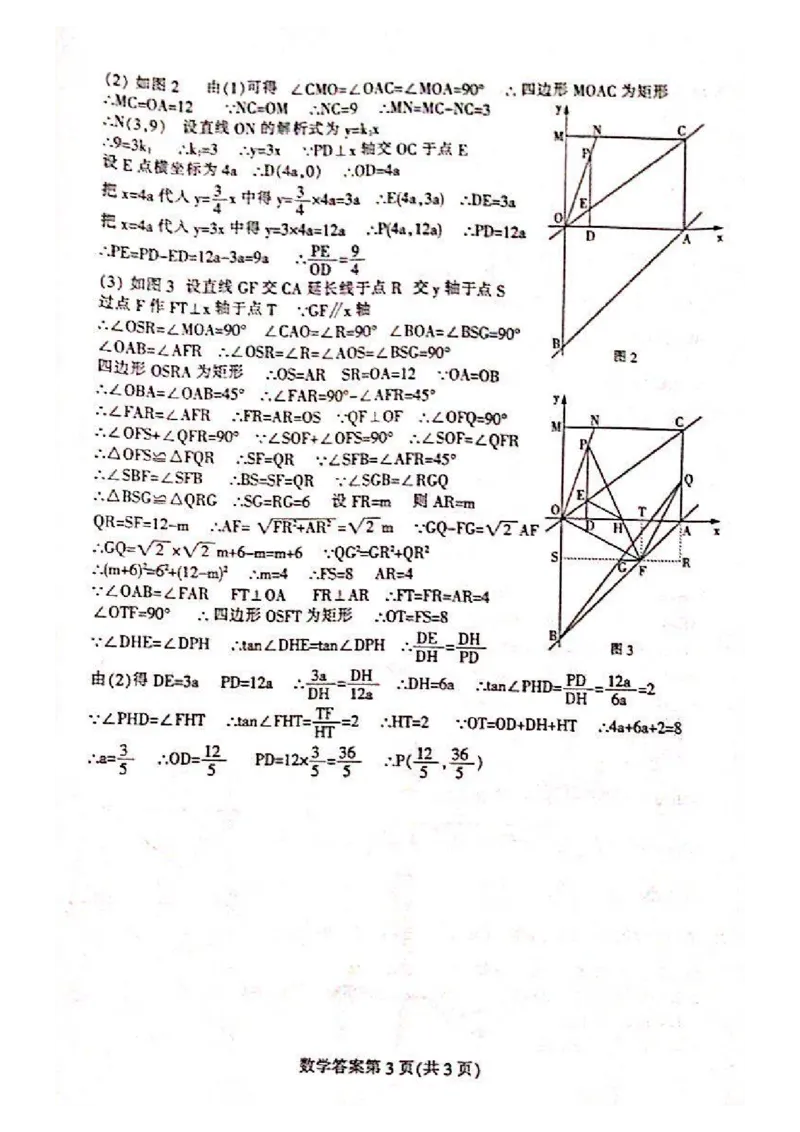 (2) 如图2 由(1)可得 ∠CMO=∠OAC=∠MOA=90° ∴四边形MOAC为矩形
∴MC=OA=12 ∵NC=OM ∴NC=9 ∴MN=MC-NC=3
∴N(3,9) 设直线ON的解析式为y=k₁x
∴9=3k₁ ∴k₁=3 ∴y=3x ∵PD⊥x轴交OC于点E
设E点横坐标为4a ∴D(4a,0) ∴OD=4a
把x=4a代入y=3/4x中得y=3/4×4a=3a ∴E(4a,3a) ∴DE=3a
把x=4a代入y=3x中得y=3×4a=12a ∴P(4a,12a) ∴PD=12a
∴PE=PD-ED=12a-3a=9a ∴PE/OD=9/4
(3) 如图3 设直线GF交CA延长线于点R 交y轴于点S
过点F作FT⊥x轴于点T ∵GF∥x轴
∴∠OSR=∠MOA=90° ∠CAO=∠R=90° ∠BOA=∠BSG=90°
∠OAB=∠AFR ∴∠OSR=∠R=∠AOS=∠BSG=90°
四边形OSRA为矩形 ∴OS=AR SR=OA=12 ∵OA=OB
∴∠OBA=∠OAB=45° ∴∠FAR=90°-∠AFR=45°
∴∠FAR=∠AFR ∴FR=AR=OS ∵QF⊥OF ∴∠OFQ=90°
∴∠OFS+∠QFR=90° ∵∠SOF+∠OFS=90° ∴∠SOF=∠QFR
∴△OFS≌△FQR ∴SF=QR ∵∠SFB=∠AFR=45°
∴∠SBF=∠SFB ∴BS=SF=QR ∵∠SGB=∠RGQ
∴△BSG≌△QRG ∴SG=RG=6 设FR=m 则AR=m
QR=SF=12-m ∴AF=√FR²+AR²=√2m ∵GQ-FG=√2AF
∴GQ=√2×√2m+6-m=m+6 ∵QG²=GR²+QR²
∴(m+6)²=6²+(12-m)² ∴m=4 ∴FS=8 AR=4
∵∠OAB=∠FAR FT⊥OA FR⊥AR ∴FT=FR=AR=4
∠OTF=90° ∴四边形OSFT为矩形 ∴OT=FS=8
∵∠DHE=∠DPH ∴tan∠DHE=tan∠DPH ∴DE/DH=DH/PD
由(2)得DE=3a PD=12a ∴3a/DH=DH/12a ∴DH=6a ∴tan∠PHD=PD/DH=12a/6a=2
∵∠PHD=∠FHT ∴tan∠FHT=TF/HT=2 ∴HT=2 ∵OT=OD+DH+HT ∴4a+6a+2=8
∴a=3/5 ∴OD=12/5 PD=12×3/5=36/5 ∴P(12/5,36/5)
y
M N C
P
E
O D A x
B
图2
y
M N C
P
Q
E
O D H T A x
S G F R
B
图3
数学答案第3页(共3页)